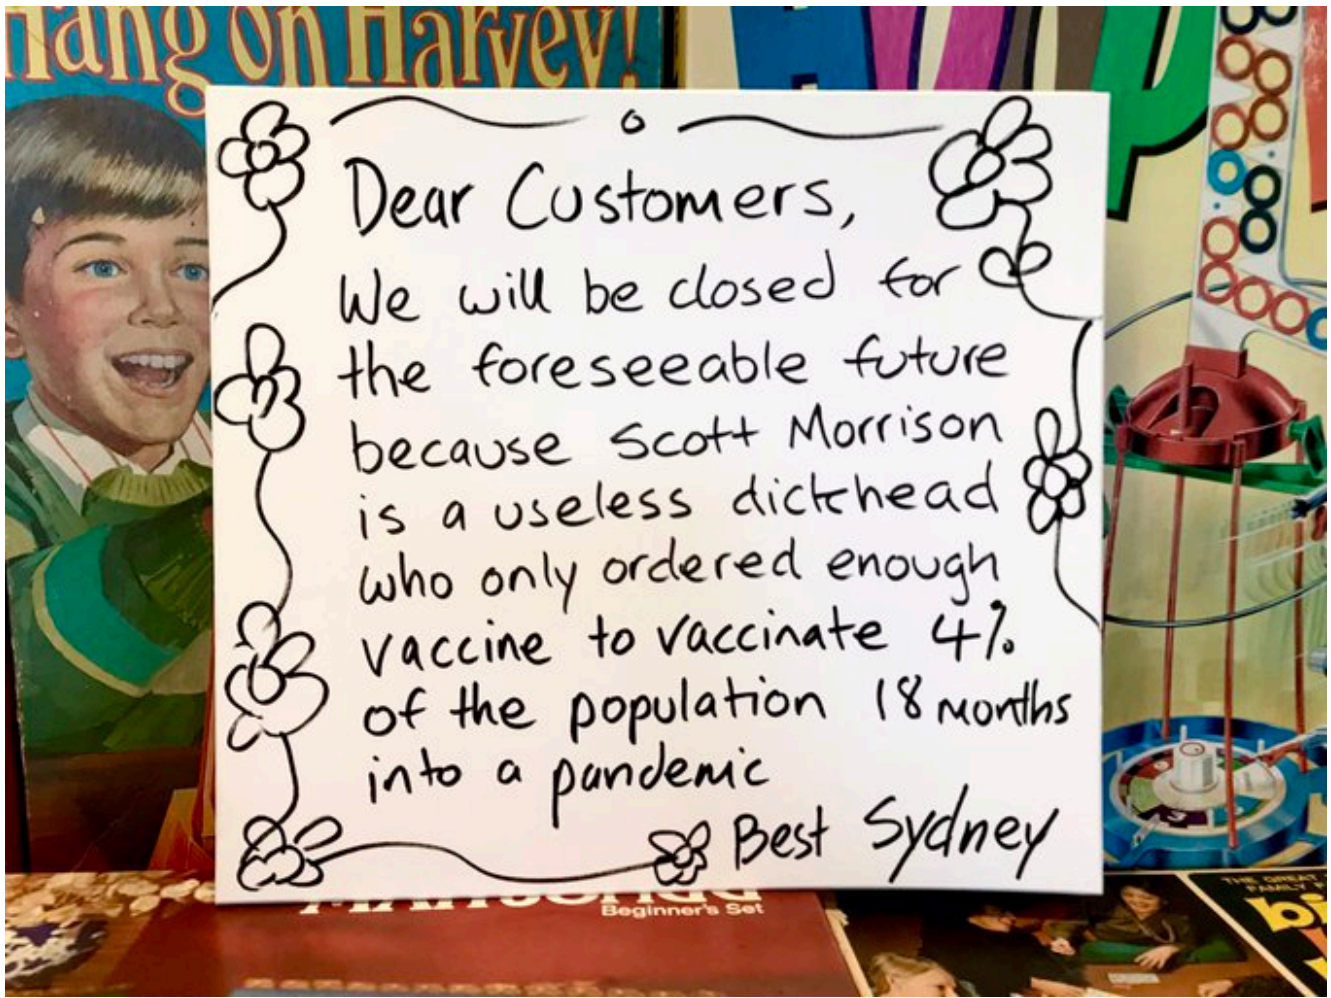 Hang on Harvey!
Dear Customers,
We will be closed for
the foreseeable future
because Scott Morrison
is a useless dickhead
who only ordered enough
vaccine to vaccinate 4%
of the population 18 months
into a pandemic
Best Sydney
Beginner's Set
THE GREAT
FAMILY